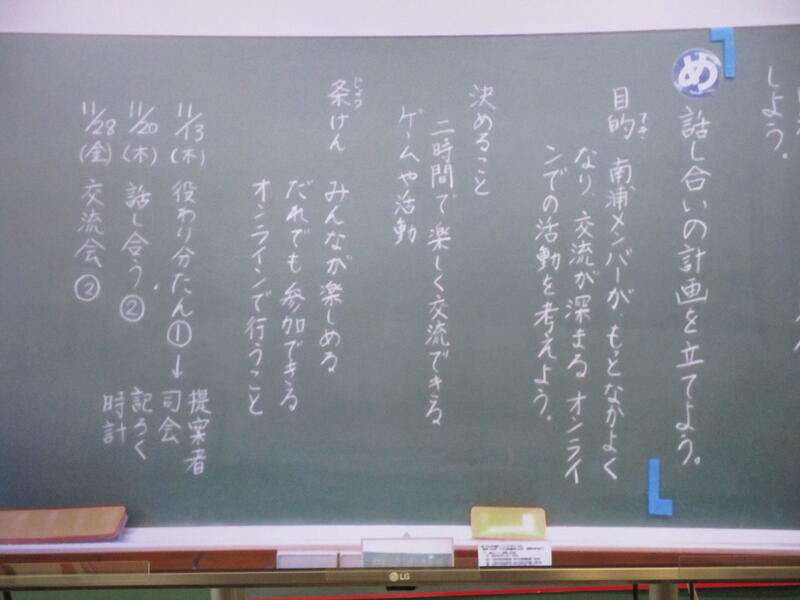 しよう。
め 話し合いの計画を立てよう。
目的 南浦メンバーが、もっとなかよく
なり、交流が深まる オンライ
ンでの活動を考えよう。
決めること
二時間で楽しく交流できる
ゲームや活動
条けん みんなが楽しめる
だれでも参加できる
オンラインで行うこと
11/13(木) 役わり分たん①→提案者
司会
記ろく
時計
11/20(木) 話し合う。②
11/28(金) 交流会②
LG